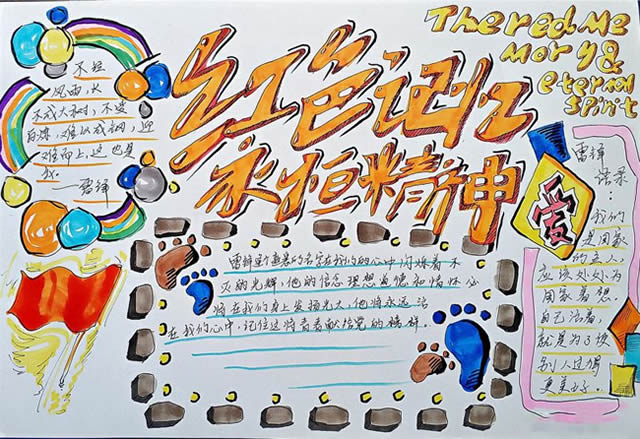 The red Me
Mory &
eternal
Spirit
红色记忆
永恒精神
不经
风雨,长
不成大树,不受
百炼,难以成钢,迎
难而上,这也是
我。
——雷锋
爱
雷锋
语录:
我们
是国家
的主人,
应该处处为
国家着想,
自己活着,
就是为了使
别人过得
更美好。
雷锋这个熟悉的名字在我们的心中闪烁着不
灭的光辉,他的信念理想道德和情怀必
将在我们身上发扬光大,他将永远活
在我们心中,记住这将青春献给党的榜样。